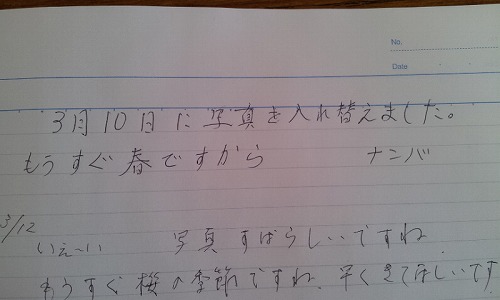 No.
Date
3月10日に写真を入れ替えました。
もうすぐ春ですから ナニバ
3/12
いぇ〜い 写真すばらしいですね
もうすぐ桜の季節ですね、早くきてほしいです